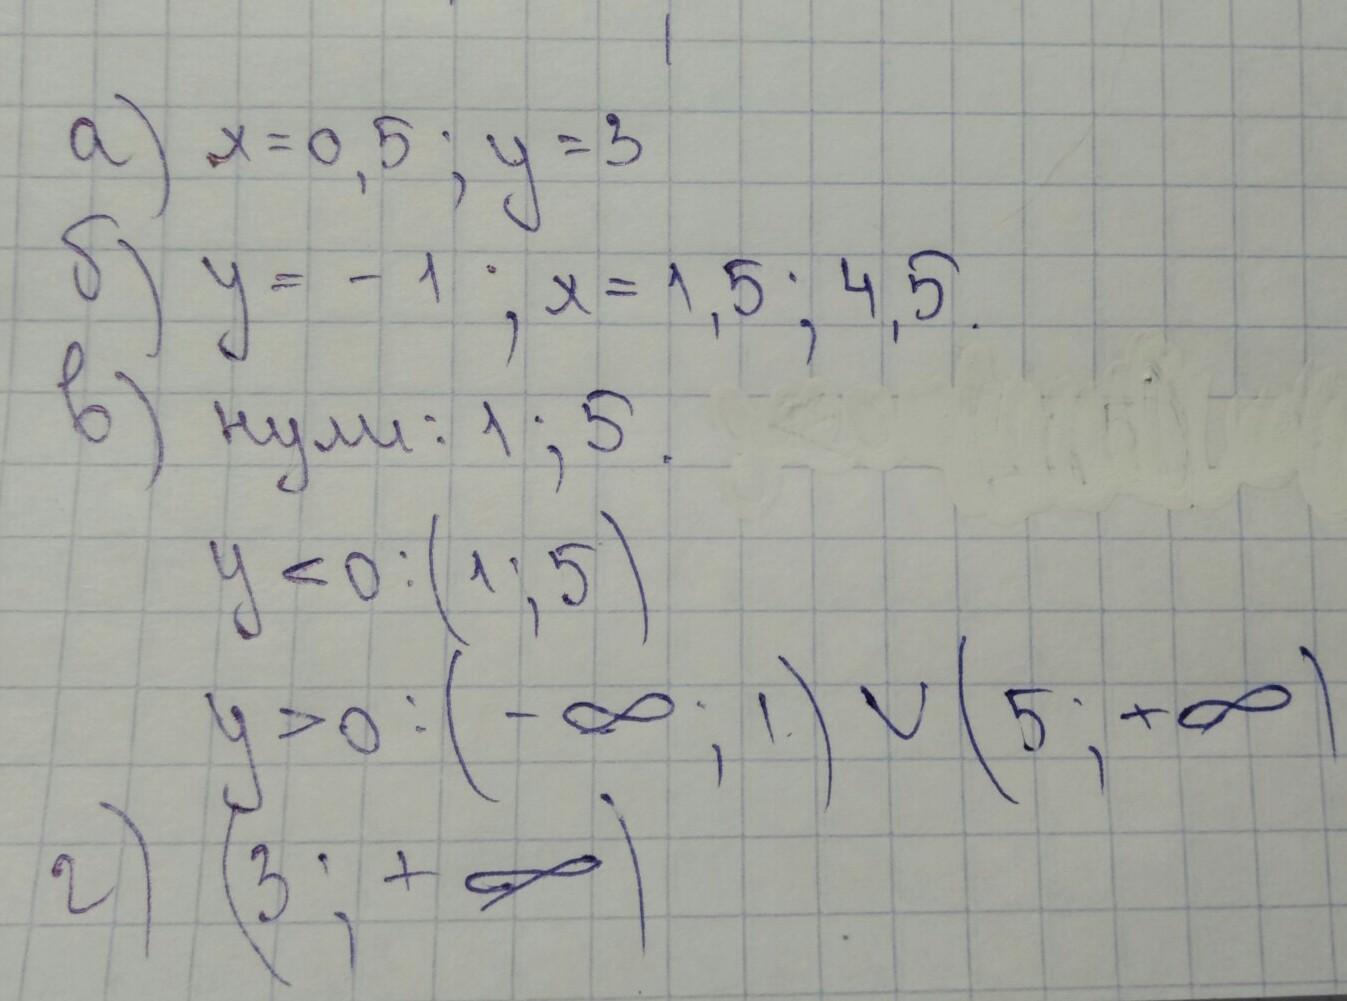 а) x=0,5; y=3
б) y= -1; x=1,5; 4,5.
в) нули: 1; 5.
y<0:(1;5)
y>0:(-∞; 1) ∪ (5; +∞)
г) (3; +∞)